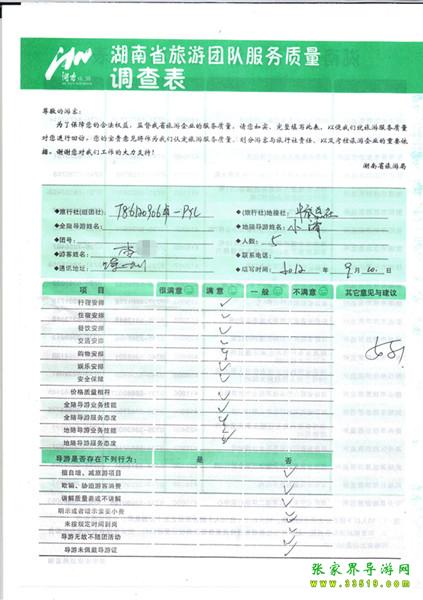 湖南省旅游团队服务质量
调查表
湖南
尊敬的游客:
为了保障您的合法权益,监督我省旅游企业的服务质量,请您如实、完整填写此表,以便我们就旅游服务质量
对您进行回访。您的宝贵意见将作为我们认定旅游服务质量、划分游客与旅行社责任、以及考核旅游企业的重要依
据。谢谢您对我们工作的大力支持!
湖南省旅游局
旅行社(组团社)
(旅行社)地接社:
全陪导游姓名:
地接导游姓名: 小
团号:
人数: 5
游客姓名: 李
联系电话:
通讯地址:
填写时间: 2012 年 9 月 10 日
项 目 很满意 满 意 一 般 不满意 其它意见与建议
行程安排
住宿安排
餐饮安排
交通安排
购物安排
娱乐安排
安全保障
价格质量相符
全陪导游业务技能
全陪导游服务态度
地陪导游业务技能
地陪导游服务态度
导游是否存在下列行为: 是 否
擅自增、减旅游项目
欺骗、胁迫游客消费
讲解质量差或不讲解
明示或者暗示索要小费
未按规定时间到岗
导游无故不随团活动
导游未佩戴导游证
张家界导游网
www.33519.com